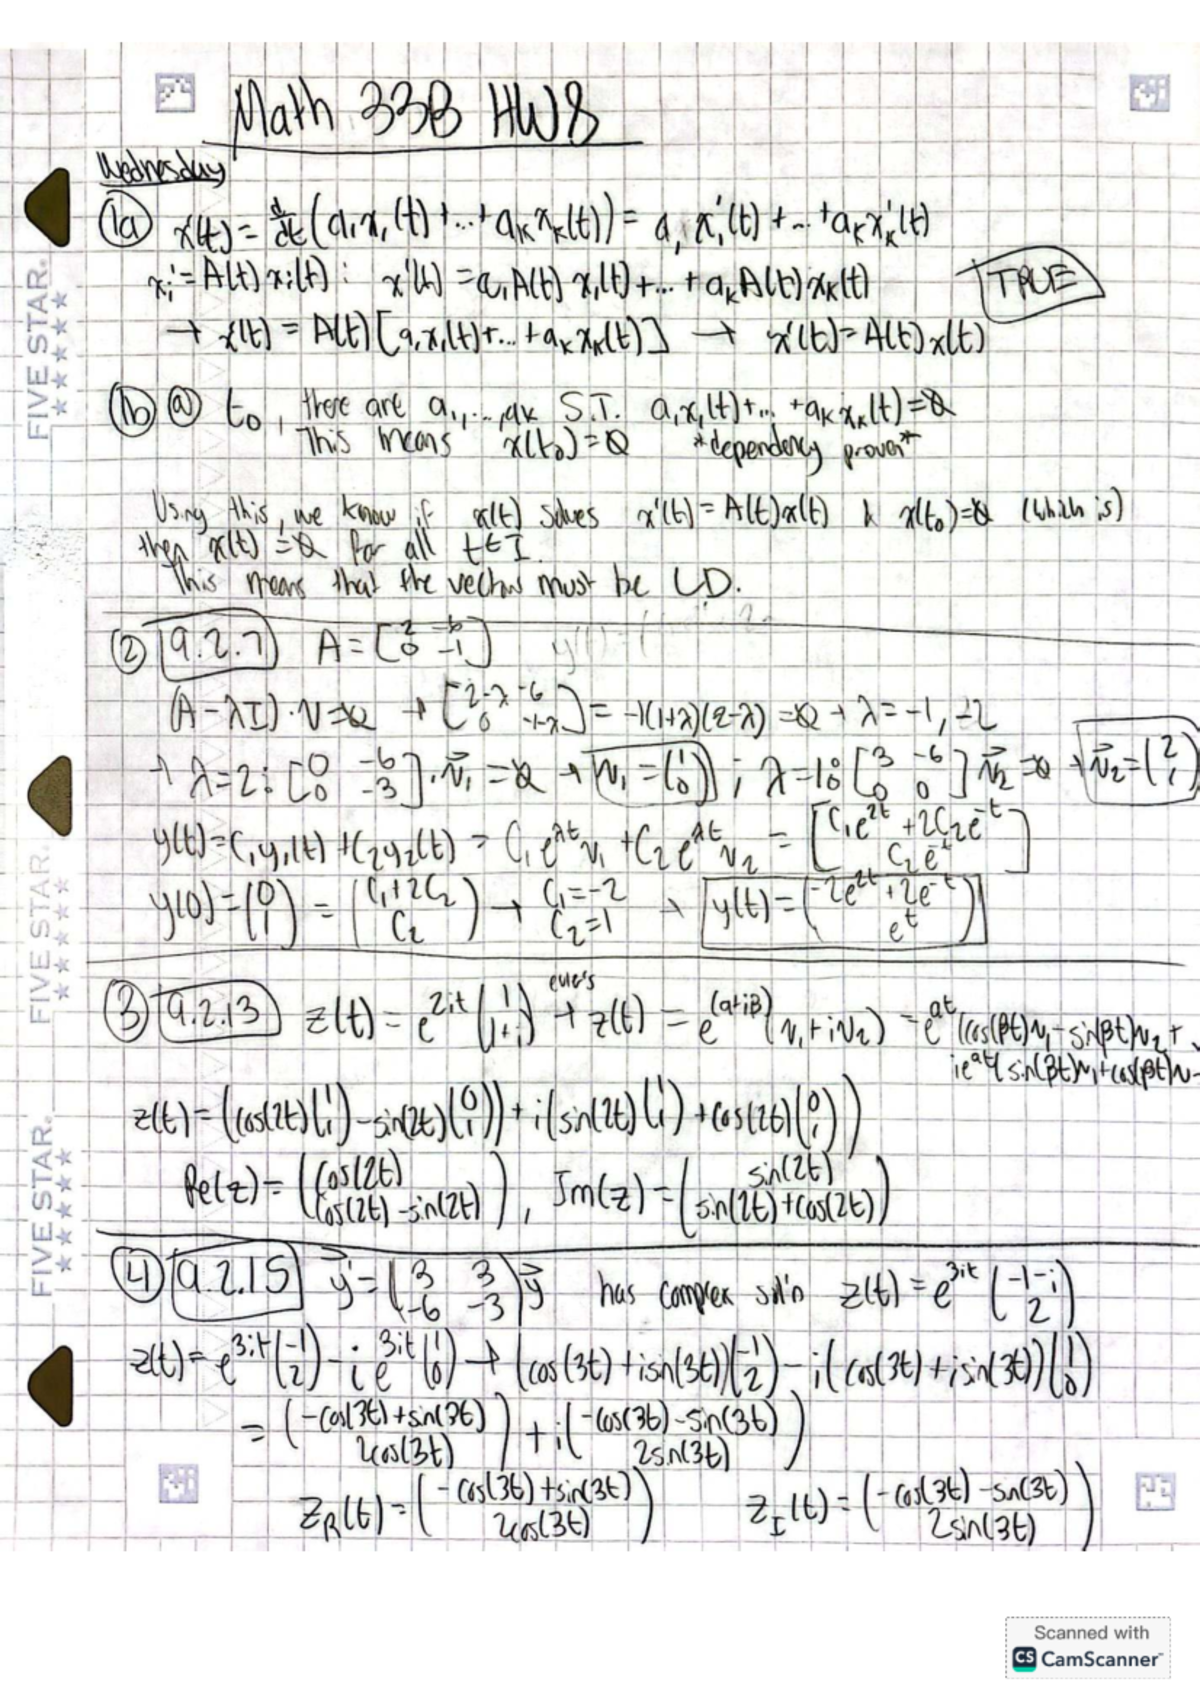 Math 33B HW8
Wednesday
1a x'(t) = d/dt (a₁x₁(t) + ... + aₖxₖ(t)) = a₁x₁'(t) + ... + aₖxₖ'(t)
xᵢ' = A(t)xᵢ(t) : x'(t) = a₁A(t)x₁(t) + ... + aₖA(t)xₖ(t) TRUE
→ x'(t) = A(t)[a₁x₁(t) + ... + aₖxₖ(t)] → x'(t) = A(t)x(t)
1b @ t₀, there are a₁,...,aₖ S.T. a₁x₁(t) + ... + aₖxₖ(t) = 0
This means x(t₀) = 0 *dependency proven*
Using this, we know if x(t) solves x'(t) = A(t)x(t) & x(t₀) = 0 (which is)
then x(t) = 0 for all t∈I.
This means that the vectors must be LD.
2 9.2.7 A = [2 -6; 0 -1]
(A-λI)·v = 0 → [2-λ -6; 0 -1-λ] = -1(1+λ)(2-λ) = 0 → λ = -1, 2
→ λ=2: [0 -6; 0 -3]·v⃗₁ = 0 → v₁ = (1; 0) ; λ=1: [3 -6; 0 0] v⃗₂ = 0 → v⃗₂ = (2; 1)
y(t) = C₁y₁(t) + C₂y₂(t) = C₁e^{λt}v₁ + C₂e^{λt}v₂ = [C₁e^{2t} + 2C₂e^{-t}; C₂e^{-t}]
y(0) = (0; 1) = (C₁+2C₂; C₂) → C₁=-2 C₂=1 → y(t) = (-2e^{2t} + 2e^{-t}; e^{t})
3 9.2.13 z(t) = e^{2it}(1; 1+i) → z(t) = e^{(α+iβ)}(v₁+iv₂) = e^{αt}(cos(βt)v₁ - sin(βt)v₂ +
ie^{αt}(sin(βt)v₁ + cos(βt)v
z(t) = (cos(2t)(1; 1) - sin(2t)(0; 1)) + i(sin(2t)(1; 1) + cos(2t)(0; 1))
Re(z) = (cos(2t); cos(2t) - sin(2t)), Im(z) = (sin(2t); sin(2t) + cos(2t))
4 9.2.15 y⃗' = (3 3; -6 -3)y⃗ has complex sol'n z(t) = e^{3it}(-1-i; 2)
z(t) = e^{3it}(-1; 2) - ie^{3it}(1; 0) → (cos(3t) + isin(3t))(-1; 2) - i(cos(3t) + isin(3t))(1; 0)
= (-cos(3t) + sin(3t); 2cos(3t)) + i(-cos(3t) - sin(3t); 2sin(3t))
z_R(t) = (-cos(3t) + sin(3t); 2cos(3t)) z_I(t) = (-cos(3t) - sin(3t); 2sin(3t))
FIVE STAR.
FIVE STAR.
FIVE STAR.
Scanned with
CS CamScanner